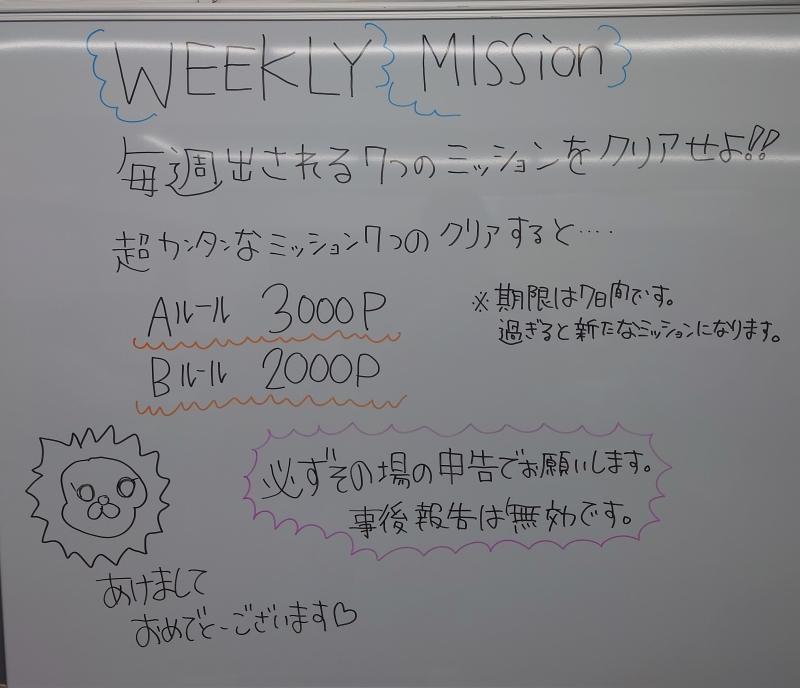 WEEKLY MISSion
毎週出される7つのミッションをクリアせよ!!
超カンタンなミッション7つのクリアすると‥‥
Aルール 3000P
※期限は7日間です。
過ぎると新たなミッションになります。
Bルール 2000P
必ずその場の申告でお願いします。
事後報告は無効です。
あけまして
おめでとーございます♡